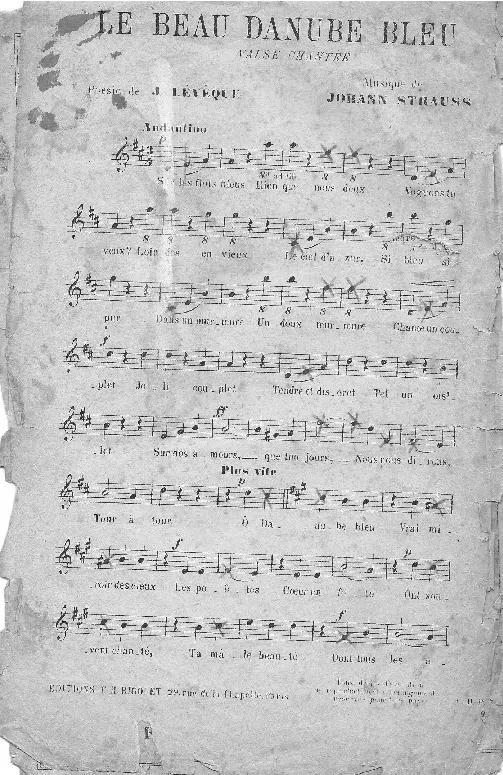 LE BEAU DANUBE BLEU
VALSE CHANTÉE
Poésie de J. LEVÊQUE
Musique de
JOHANN STRAUSS
Andantino
p
Sur les flots bleus Rien que nous deux Voguons tu
8 8
veux? Loin des en vieux Le ciel d'a zur Si bleu si
8 8 8 8 8
pur Dans un mur mure Un doux mur mure Chante un cou
8 8 8 8
f
plet Jo li cou plet Tendre et dis cret Tel un
ff
let Sur nos a mours, que tou jours, Nous nous di rons,
Plus vite
p
Tour à tour O Da nu be bleu Vrai mi
f p
roir des cieux Les po è tes Cœur en fê te Qui sou
f
vent chan té, Ta mâ le beau té Dont tous les a
EDITIONS F. H. BIGOT ET 28, rue de la Chapelle, Paris